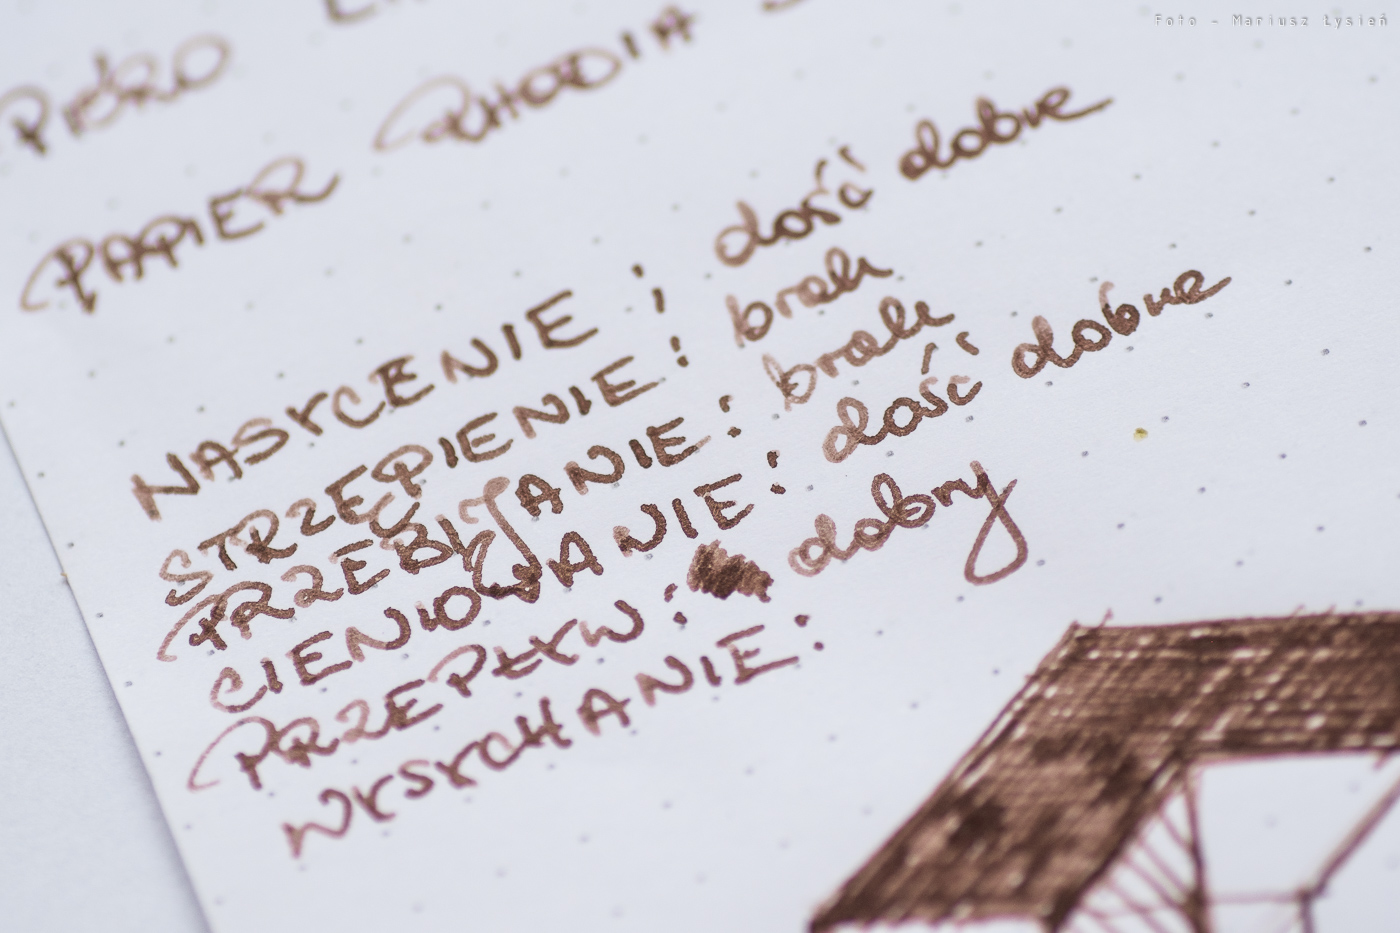 Foto - Mariusz Łysień
PIÓRO
PAPIER RHODIA
NASYCENIE : dość dobre
STRZĘPIENIE : brak
PRZEBIJANIE : brak
CIENIOWANIE : dość dobre
PRZEPŁYW : dobry
WYSYCHANIE :